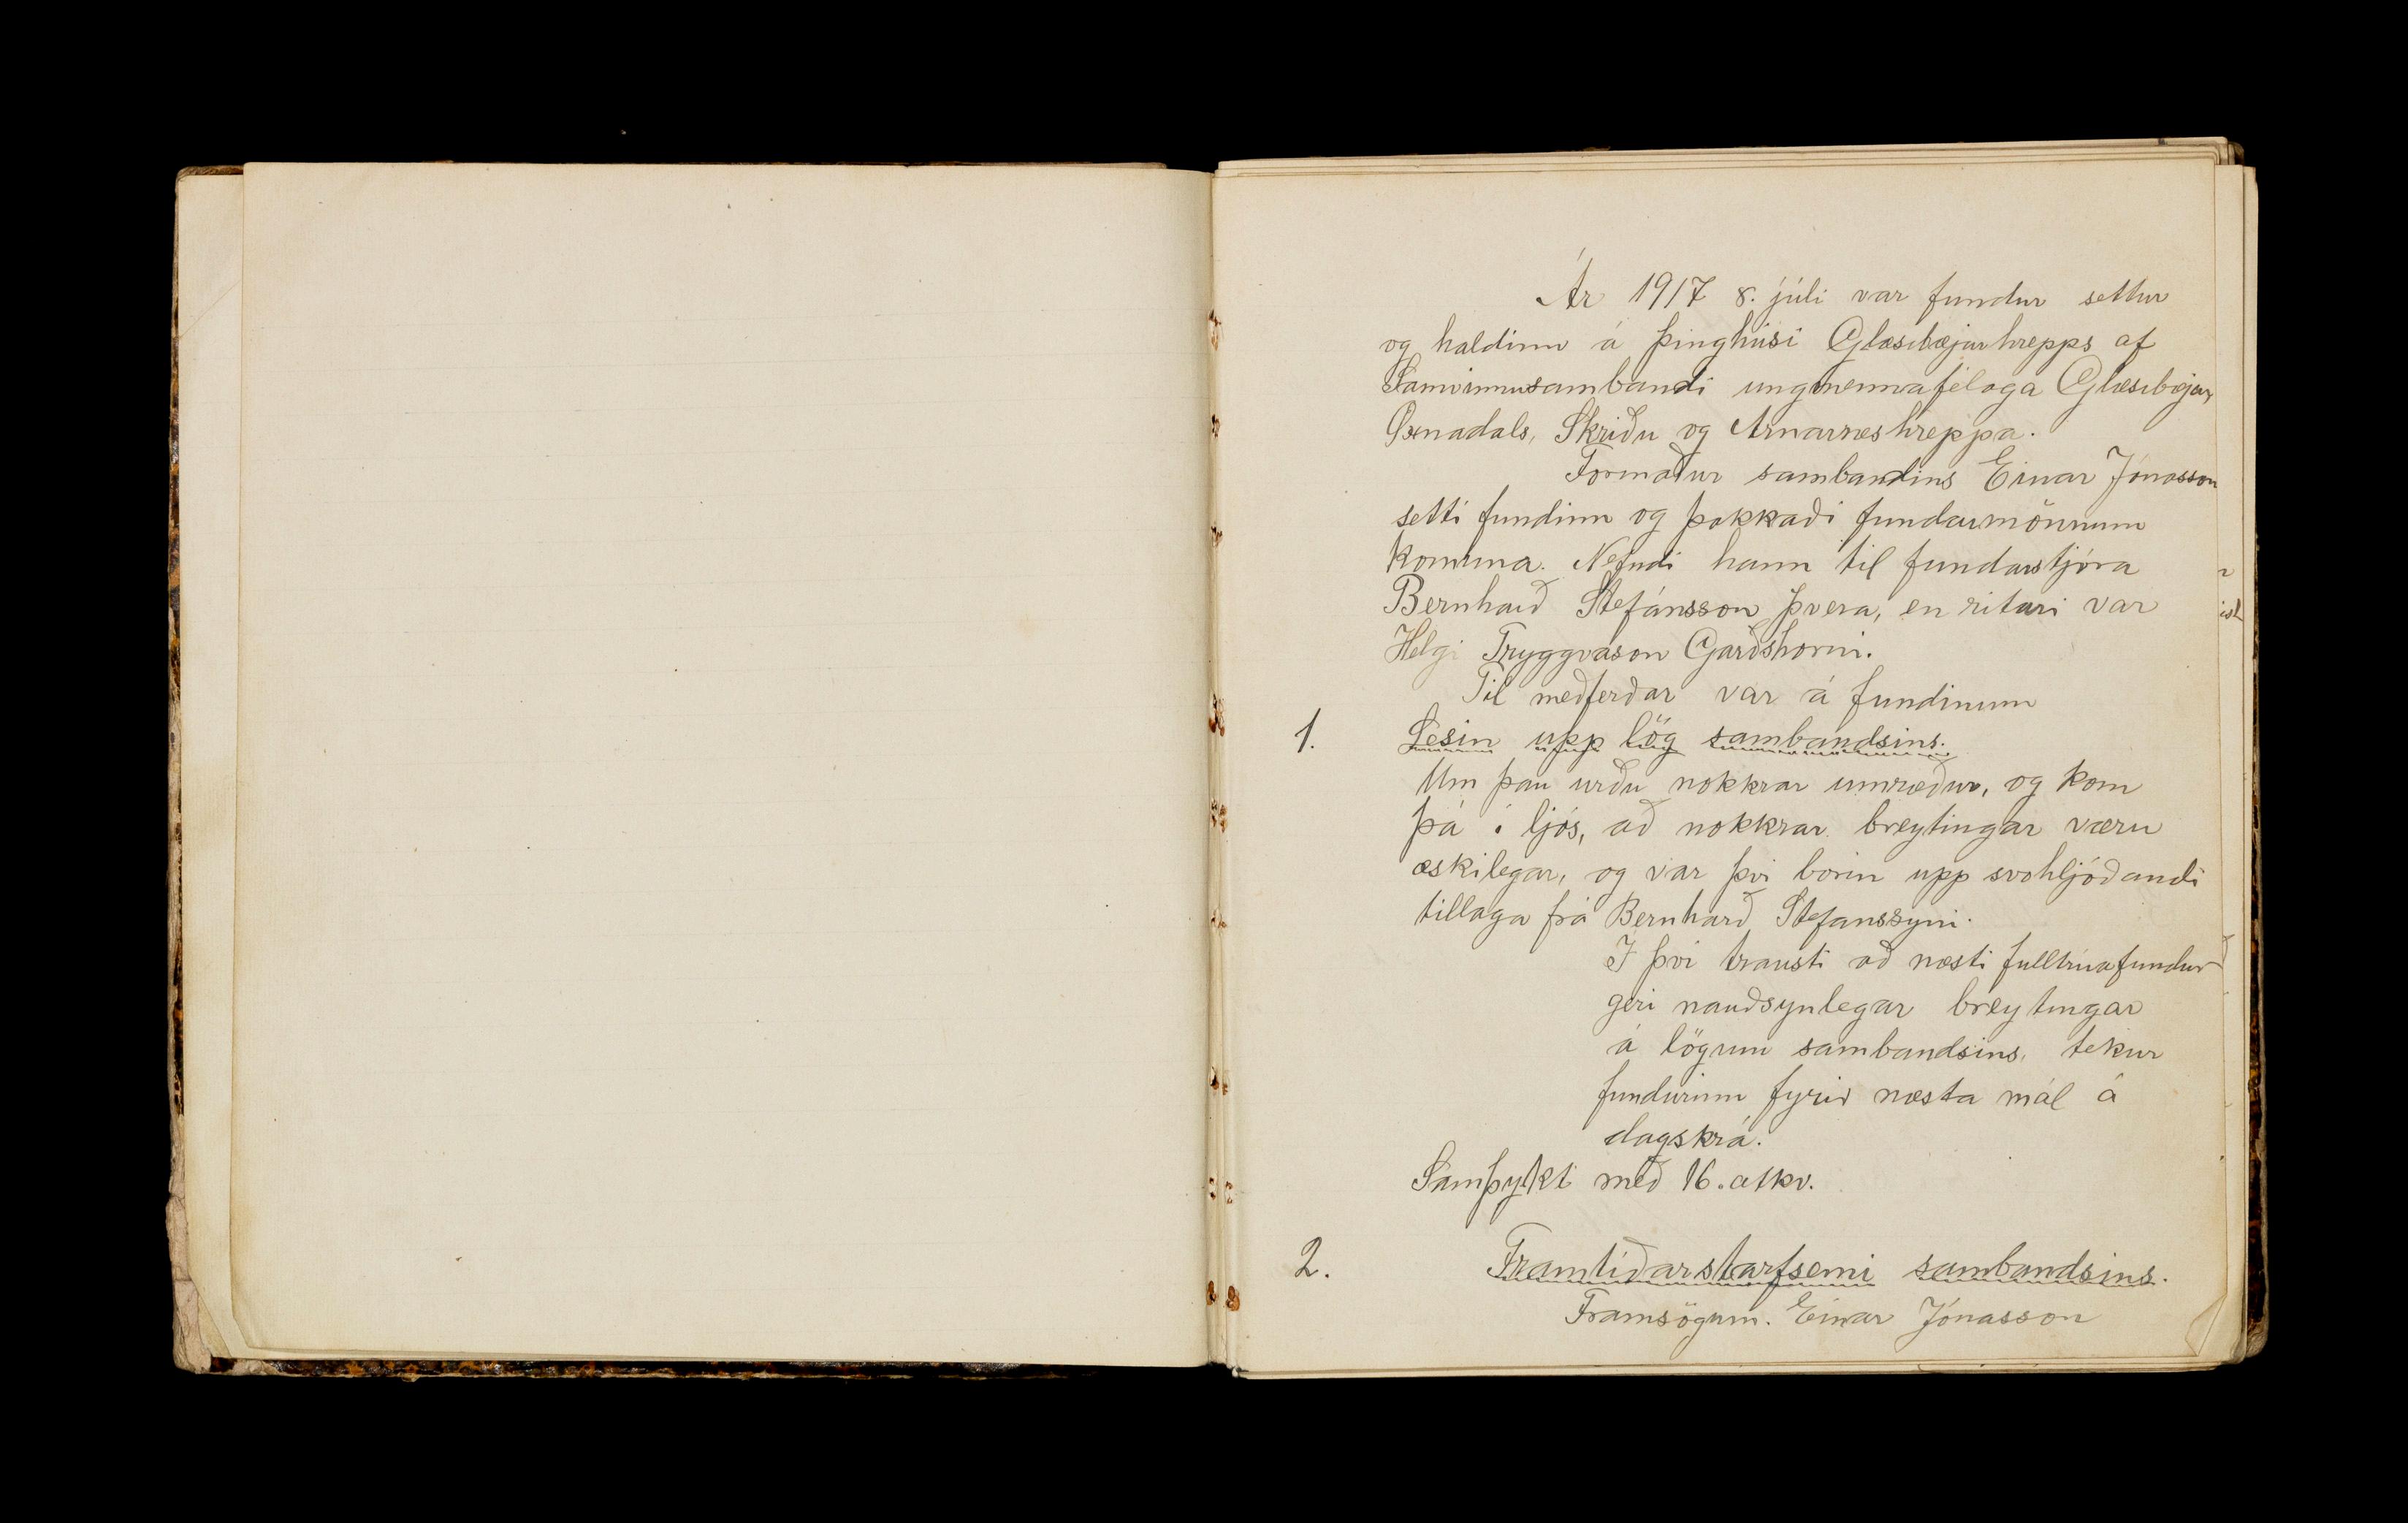 Ár 1917 8. júli var fundur settur
og haldinn á þinghúsi Glæsibæjarhrepps af
Samvinnusambandi ungmennafélaga Glæsibæjar,
Öxnadals, Skriðu og Arnarneshreppa.
Formaður sambandins Einar Jónasson
setti fundinn og þakkaði fundarmönnum
komuna. Nefndi hann til fundarstjóra
Bernharð Stefánsson Þvera, en ritari var
Helgi Tryggvason Garðshorni.
Til meðferðar var á fundinum
1. Lesin upp lög sambandsins.
Um þau urðu nokkrar umræður, og kom
þá í ljós, að nokkrar breytingar væru
æskilegar, og var því borin upp svohljóðandi
tillaga frá Bernharð Stefanssyni.
Í því trausti að næsti fulltrúafundur
geri nauðsynlegar breytingar
á lögum sambandsins, tekur
fundurinn fyrir næsta mál á
dagskrá.
Samþykt með 16. atkv.
2. Framtíðarstarfsemi sambandsins.
Framsögum. Einar Jónasson